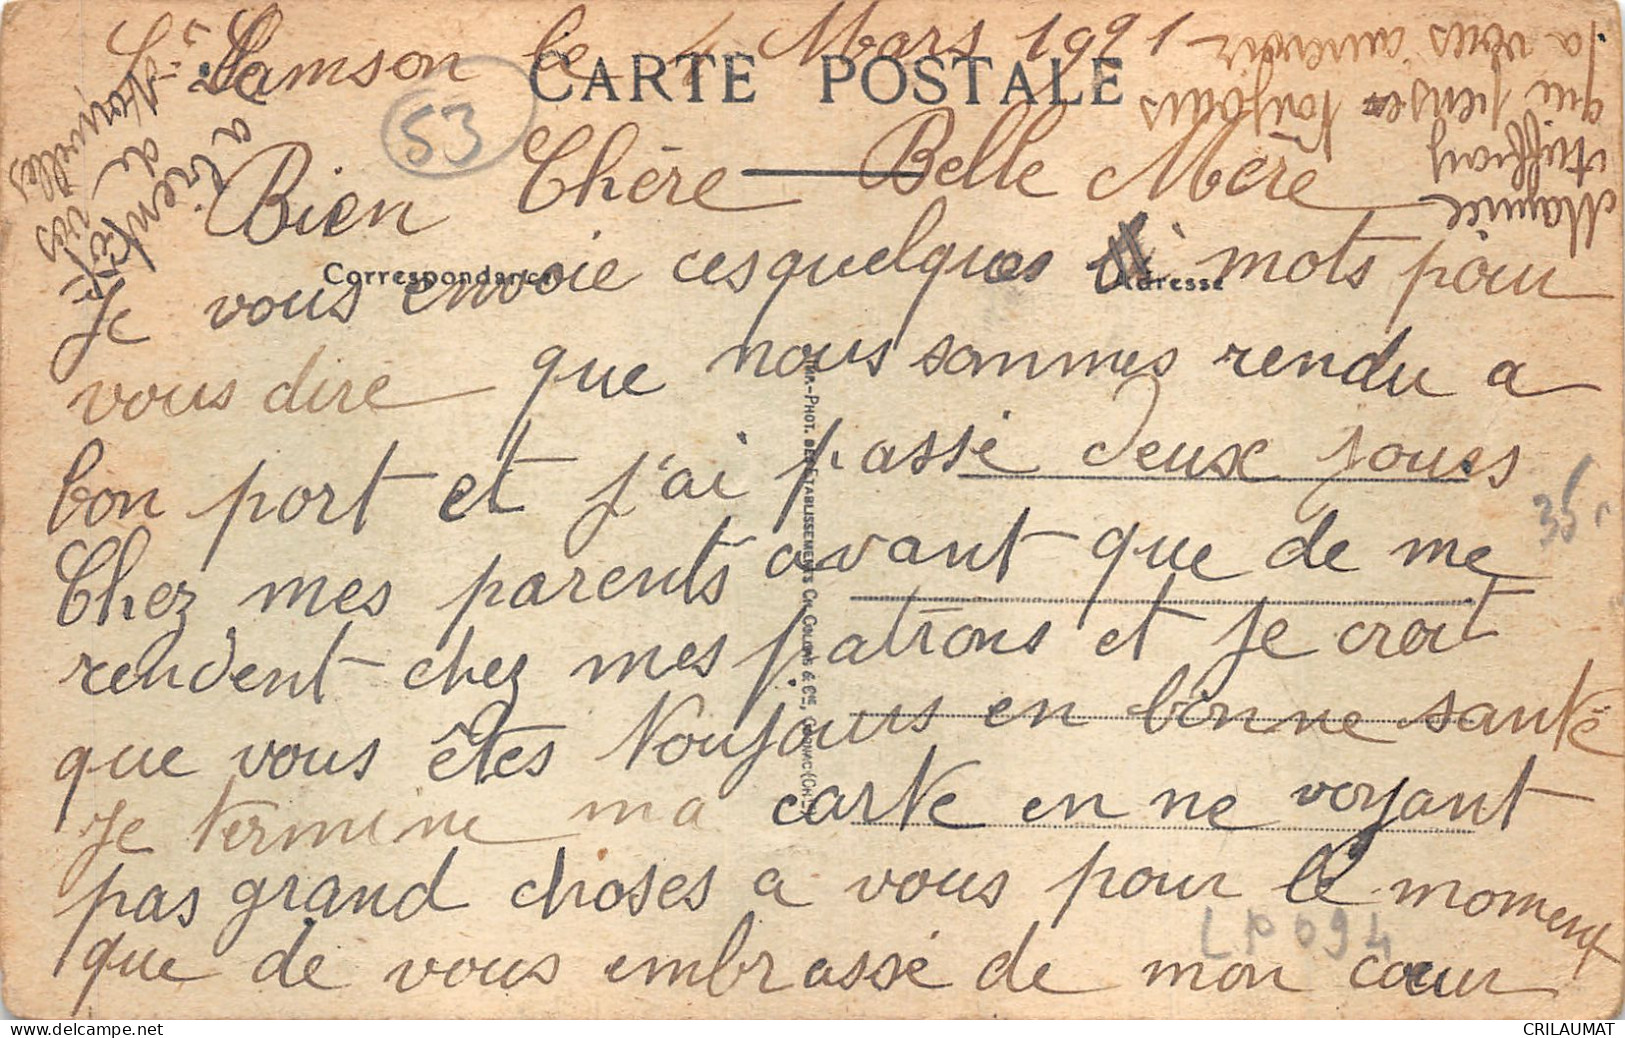 St Samson le 4 Mars 1921
CARTE POSTALE
53
Bien Chère Belle Mère
Correspondance
Adresse
Je vous envoie ces quelques mots pour
vous dire que nous sommes rendu a
bon port et j'ai passé deux jours
Chez mes parents avant que de me
rendent chez mes patrons et je croit
que vous êtes toujours en bonne santé
je termine ma carte en ne voyant
pas grand choses a vous pour le moment
que de vous embrassé de mon cœur
qui pense toujours
a vous aurevoir
a bientot
de vos
Nouvelles
PHOT. DES ETABLISSEMENTS CH. COLLAS & Cie, COGNAC (CH.)
35
LP 094
CRILAUMAT